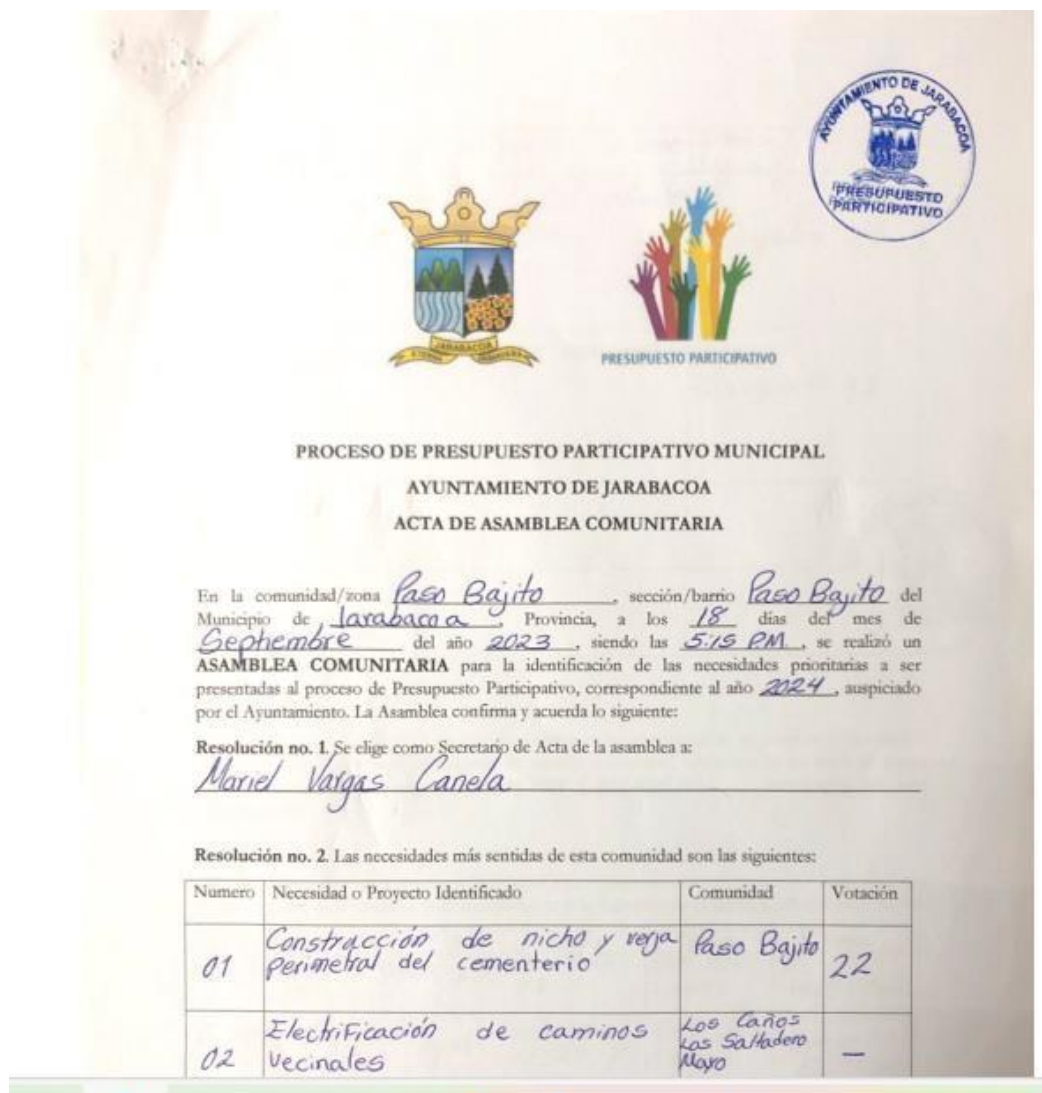 AYUNTAMIENTO DE JARABACOA
PRESUPUESTO
PARTICIPATIVO
JARABACOA
PRESUPUESTO PARTICIPATIVO
PROCESO DE PRESUPUESTO PARTICIPATIVO MUNICIPAL
AYUNTAMIENTO DE JARABACOA
ACTA DE ASAMBLEA COMUNITARIA
En la comunidad/zona Paso Bajito, sección/barrio Paso Bajito del
Municipio de Jarabacoa, Provincia, a los 18 dias del mes de
Septiembre del año 2023, siendo las 5:15 PM, se realizó un
ASAMBLEA COMUNITARIA para la identificación de las necesidades prioritarias a ser
presentadas al proceso de Presupuesto Participativo, correspondiente al año 2024, auspiciado
por el Ayuntamiento. La Asamblea confirma y acuerda lo siguiente:
Resolución no. 1. Se elige como Secretario de Acta de la asamblea a:
Mariel Vargas Canela
Resolución no. 2. Las necesidades más sentidas de esta comunidad son las siguientes:
Numero Necesidad o Proyecto Identificado Comunidad Votación
01 Construcción de nicho y verja perimetral del cementerio Paso Bajito 22
02 Electrificación de caminos vecinales Los Caños Los Saltadero Mayo —